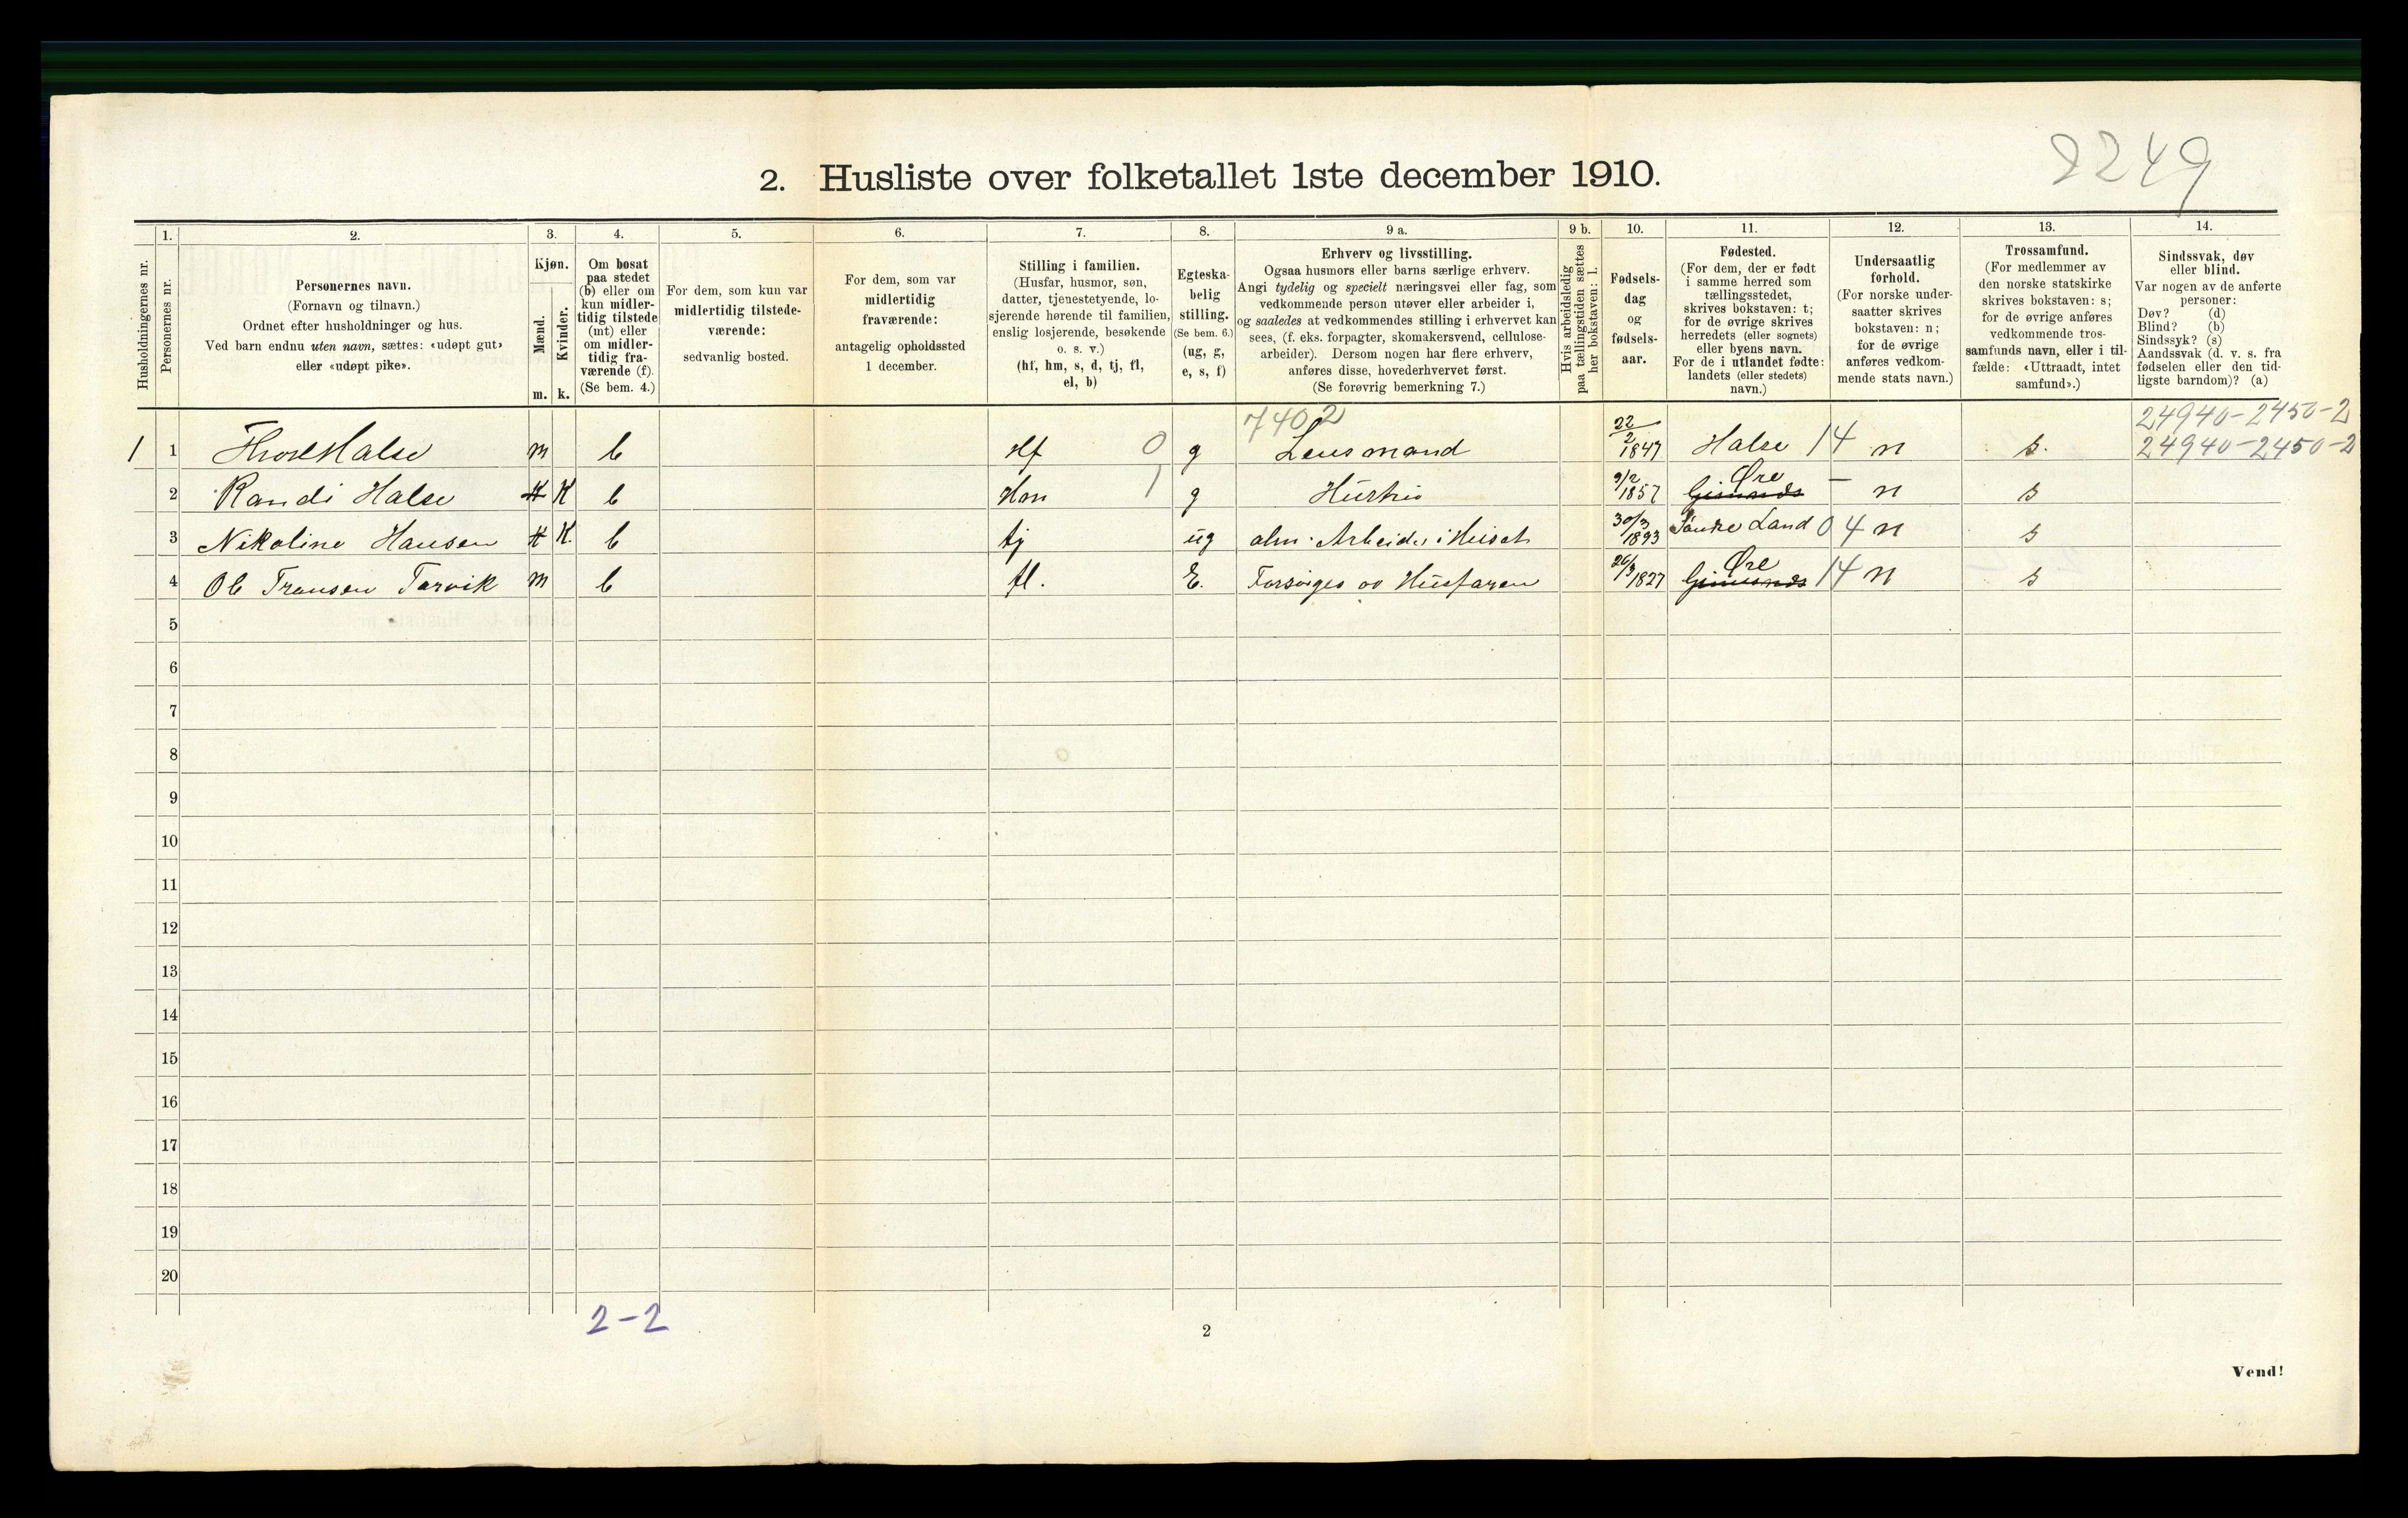 2249
2. Husliste over folketallet 1ste december 1910.
Husholdningernes nr.
1. Personernes nr.
2.
Personernes navn.
(Fornavn og tilnavn.)
Ordnet efter husholdninger og hus.
Ved barn endnu uten navn, sættes: «udøpt gut»
eller «udøpt pike».
3.
Kjøn.
Mænd. Kvinder.
m. k.
4.
Om bosat
paa stedet
(b) eller om
kun midler-
tidig tilstede
(mt) eller
om midler-
tidig fra-
værende (f).
(Se bem. 4.)
5.
For dem, som kun var
midlertidig tilstede-
værende:
sedvanlig bosted.
6.
For dem, som var
midlertidig
fraværende:
antagelig opholdssted
1 december.
7.
Stilling i familien.
(Husfar, husmor, søn,
datter, tjenestetyende, lo-
sjerende hørende til familien,
enslig losjerende, besøkende
o. s. v.)
(hf, hm, s, d, tj, fl,
el, b)
8.
Egteska-
belig
stilling.
(Se bem. 6.)
(ug, g,
e, s, f)
9 a.
Erhverv og livsstilling.
Ogsaa husmors eller barns særlige erhverv.
Angi tydelig og specielt næringsvei eller fag, som
vedkommende person utøver eller arbeider i,
og saaledes at vedkommendes stilling i erhvervet kan
sees, (f. eks. forpagter, skomakersvend, cellulose-
arbeider). Dersom nogen har flere erhverv,
anføres disse, hovederhvervet først.
(Se forøvrig bemerkning 7.)
9 b.
Hvis arbeidsledig
paa tællingstiden sættes
her bokstaven: l.
10.
Fødsels-
dag
og
fødsels-
aar.
11.
Fødested.
(For dem, der er født
i samme herred som
tællingsstedet,
skrives bokstaven: t;
for de øvrige skrives
herredets (eller sognets)
eller byens navn.
For de i utlandet fødte:
landets (eller stedets)
navn.)
12.
Undersaatlig
forhold.
(For norske under-
saatter skrives
bokstaven: n;
for de øvrige
anføres vedkom-
mende stats navn.)
13.
Trossamfund.
(For medlemmer av
den norske statskirke
skrives bokstaven: s;
for de øvrige anføres
vedkommende tros-
samfunds navn, eller i til-
fælde: «Uttraadt, intet
samfund».)
14.
Sindssvak, døv
eller blind.
Var nogen av de anførte
personer:
Døv? (d)
Blind? (b)
Sindssyk? (s)
Aandssvak (d. v. s. fra
fødselen eller den tid-
ligste barndom)? (a)
7402 24940-2450-2
1 1 Halse m b Hf 0 g Lensmand 22/2 1847 Halse 14 n s. 24940-2450-2
2 Randi Halse K b Hm 1 g Hustru 9/2 1857 Øre - n s
3 Nikoline Hansen K. b tj ug alm. Arbeide i Huset 30/3 1893 Søndre Land 04 n s
4 Ole Transen Torvik m b fl. E. Forsørges av Husfaren 26/3 1827 Øre 14 n s
5
6
7
8
9
10
11
12
13
14
15
16
17
18
19
20
2-2
2
Vend!